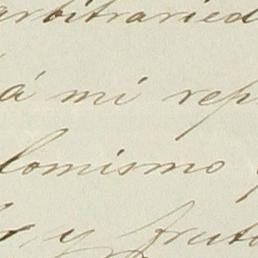 arbitraried
á mi rep
lomismo
y fruto